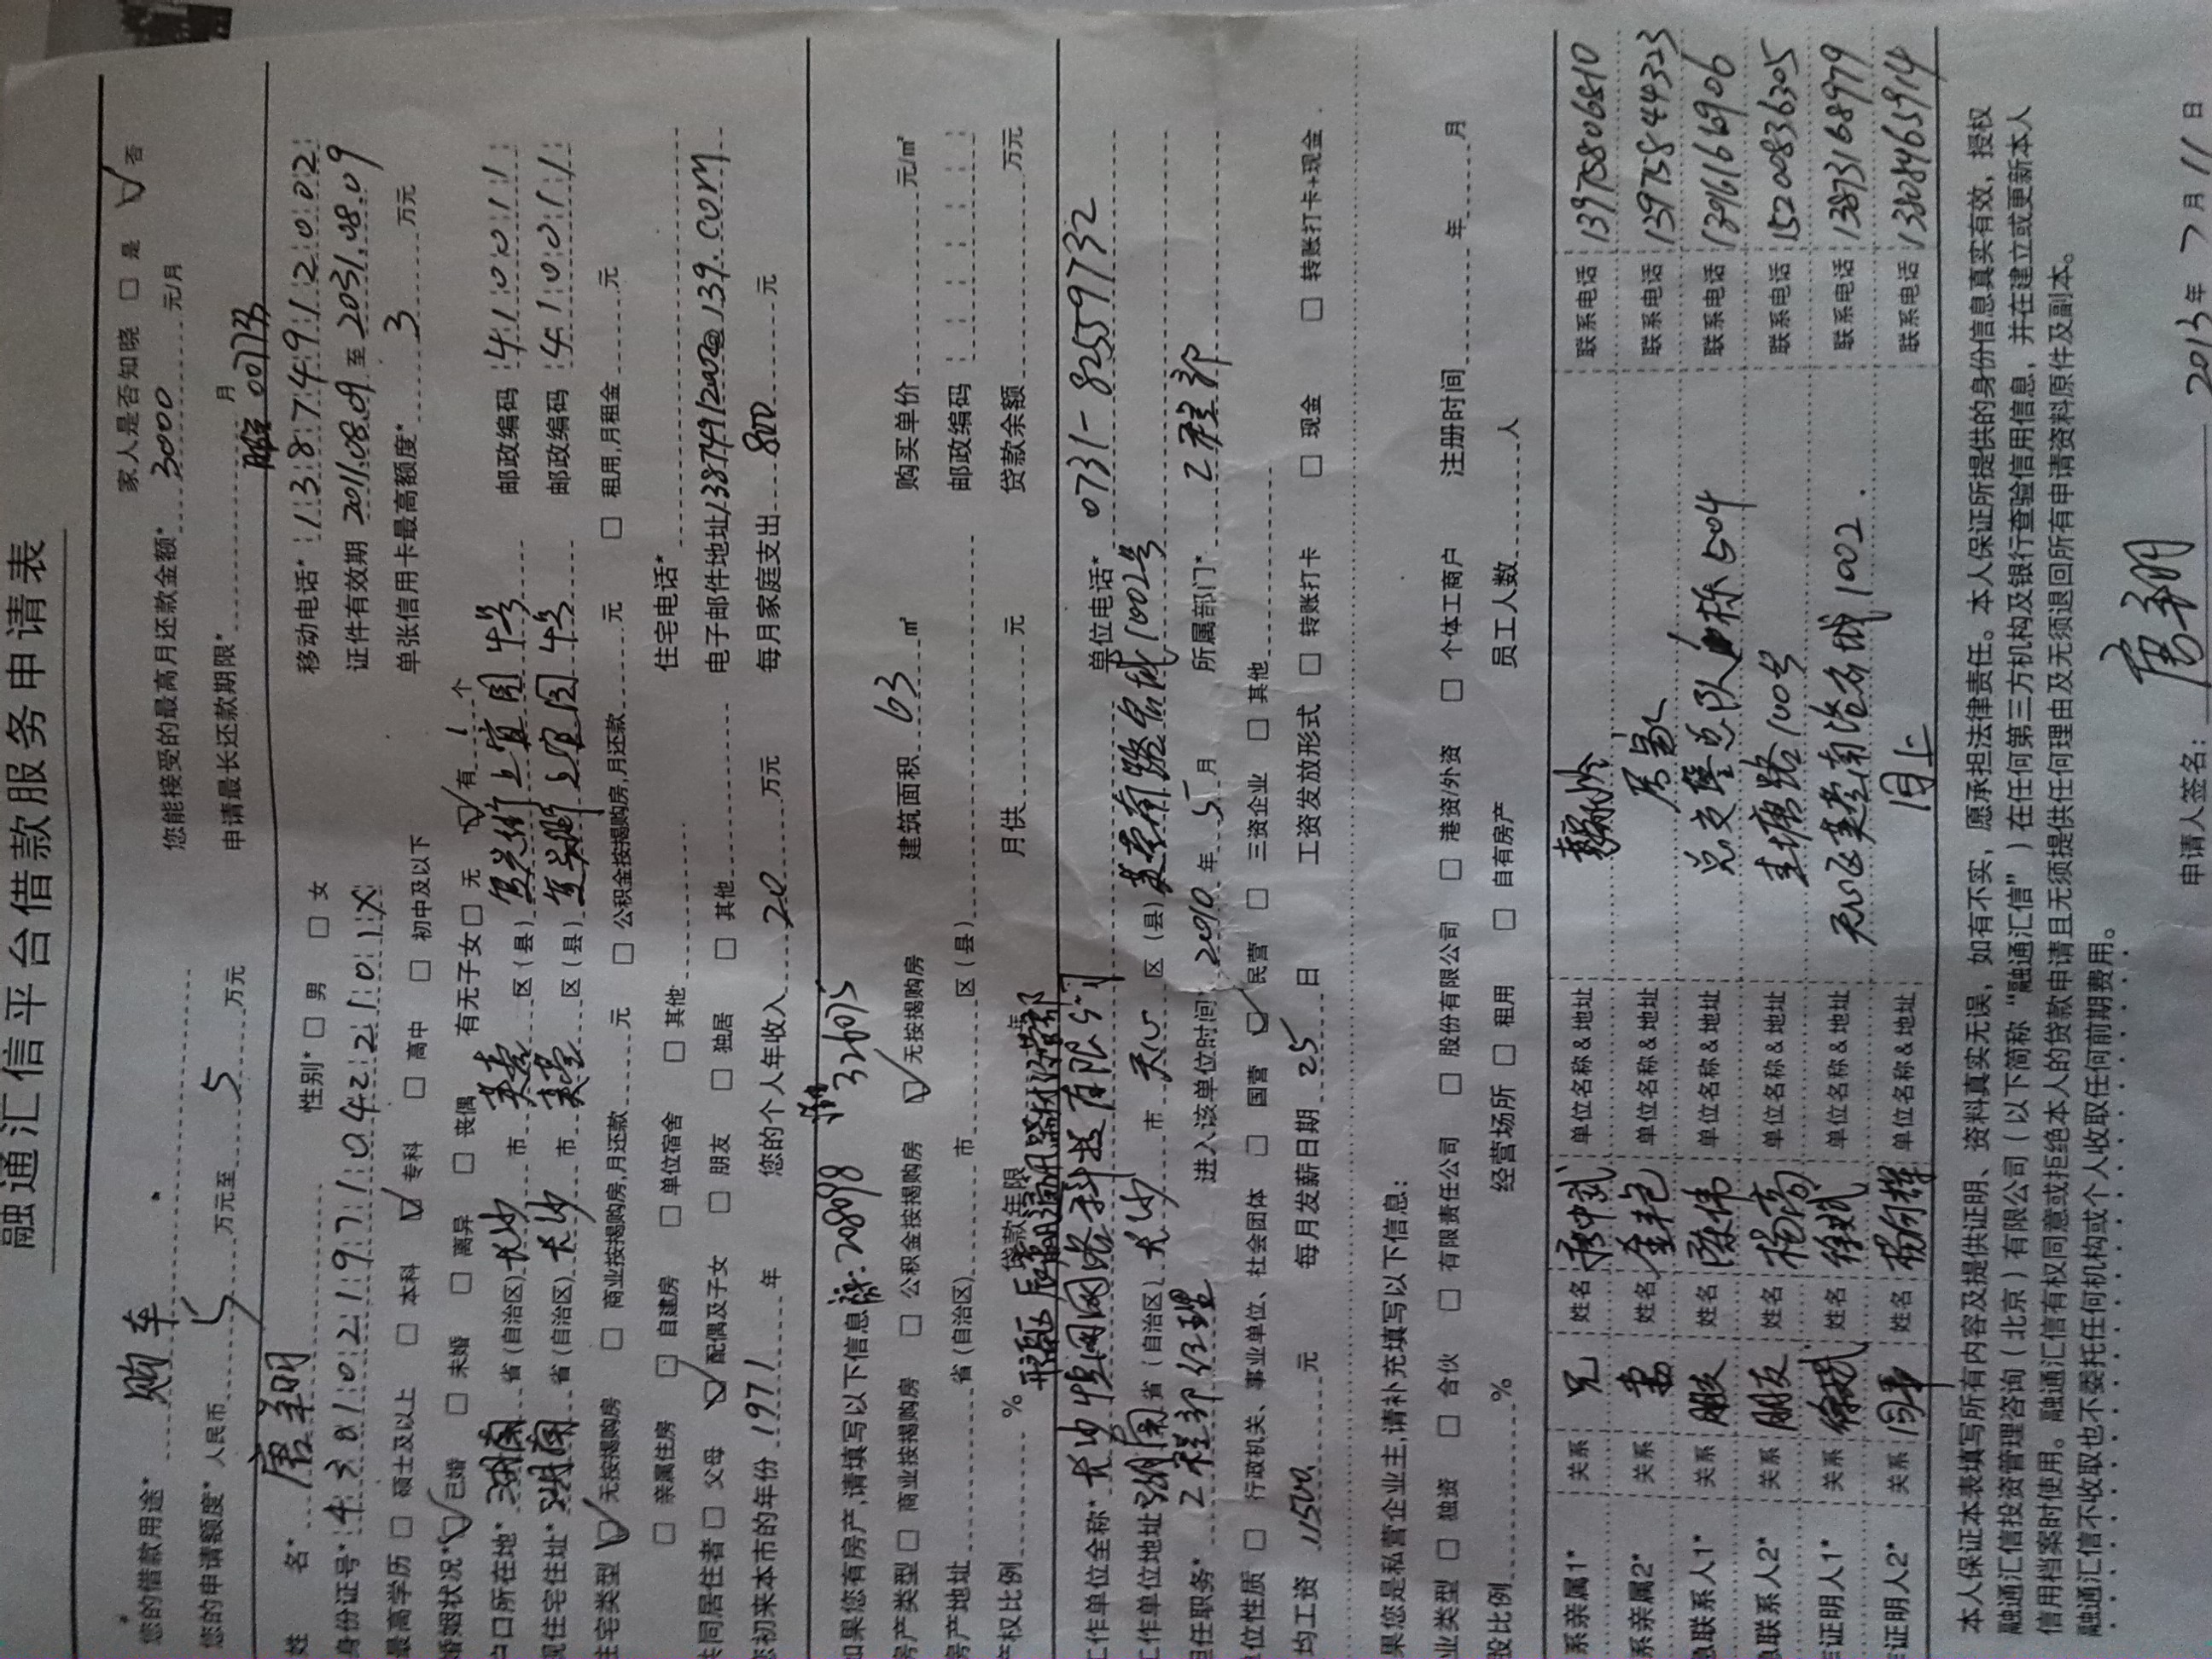 融通汇信平台借款服务申请表
您的借款用途* 购车 家人是否知晓 □ 是 ☑ 否
您的申请额度* 人民币 5 万元至 5 万元 您能接受的最高月还款金额* 3000 元/月
申请最长还款期限* 月
姓 名* 唐羽 性别* □ 男 □ 女 移动电话* 13874912002
身份证号* 43810219710421011X 证件有效期 2011.08.09 至 2031.08.09
最高学历 □ 硕士及以上 □ 本科 ☑ 专科 □ 高中 □ 初中及以下 单张信用卡最高额度* 3 万元
婚姻状况* ☑ 已婚 □ 未婚 □ 离异 □ 丧偶 有无子女 □ 无 ☑ 有 1 个
户口所在地* 湖南 省(自治区) 长沙 市 芙蓉 区(县) 邮政编码 410011
现住宅住址* 湖南 省(自治区) 长沙 市 芙蓉 区(县) 邮政编码 410011
住宅类型 ☑ 无按揭购房 □ 商业按揭购房,月还款 元 □ 公积金按揭购房,月还款 元 □ 租用,月租金 元
□ 亲属住房 □ 自建房 □ 单位宿舍 □ 其他 住宅电话*
共同居住者 □ 父母 ☑ 配偶及子女 □ 朋友 □ 独居 □ 其他 电子邮件地址 13874912002@139.com
您初来本市的年份 1971 年 您的个人年收入 20 万元 每月家庭支出 800 元
如果您有房产,请填写以下信息
房产类型 □ 商业按揭购房 □ 公积金按揭购房 ☑ 无按揭购房 建筑面积 63 ㎡ 购买单价 元/㎡
房产地址 省(自治区) 市 区(县) 邮政编码
产权比例 % 贷款年限 年 月供 元 贷款余额 万元
工作单位全称* 网络科技有限公司 单位电话* 0731-82559732
工作单位地址 湖南 省(自治区) 长沙 市 天心 区(县) 芙蓉南路 1002号
担任职务* 工程部经理 进入该单位时间 2010 年 5 月 所属部门* 工程部
单位性质 □ 行政机关、事业单位、社会团体 □ 国营 ☑ 民营 □ 三资企业 □ 其他
均工资 11500 元 每月发薪日期 25 日 工资发放形式 □ 转账打卡 □ 现金 □ 转账打卡+现金
果您是私营企业主,请补充填写以下信息:
业类型 □ 独资 □ 合伙 □ 有限责任公司 □ 股份有限公司 □ 港资/外资 □ 个体工商户 注册时间 年 月
股比例 % 经营场所 □ 租用 □ 自有房产 员工人数 人
系亲属1* 关系 兄 姓名 单位名称&地址 联系电话 13975806810
系亲属2* 关系 妻 姓名 单位名称&地址 联系电话 13975844323
联系人1* 关系 朋友 姓名 陈伟 单位名称&地址 联系电话
联系人2* 关系 朋友 姓名 单位名称&地址 圭塘路100号 联系电话 15200836305
证明人1* 关系 姓名 徐斌 单位名称&地址 联系电话 13873168979
证明人2* 关系 同事 姓名 单位名称&地址 同上 联系电话 13808465914
本人保证本表填写所有内容及提供证明、资料真实无误，如有不实，愿承担法律责任。本人保证所提供的身份信息真实有效，授权
融通汇信投资管理咨询（北京）有限公司（以下简称“融通汇信”）在任何第三方机构及银行查验信用信息，并在建立或更新本人
信用档案时使用。融通汇信有权同意或拒绝本人的贷款申请且无须提供任何理由及无须退回所有申请资料原件及副本。
融通汇信不收取也不委托任何机构或个人收取任何前期费用。
申请人签名: 唐羽 2013年 7月 11日